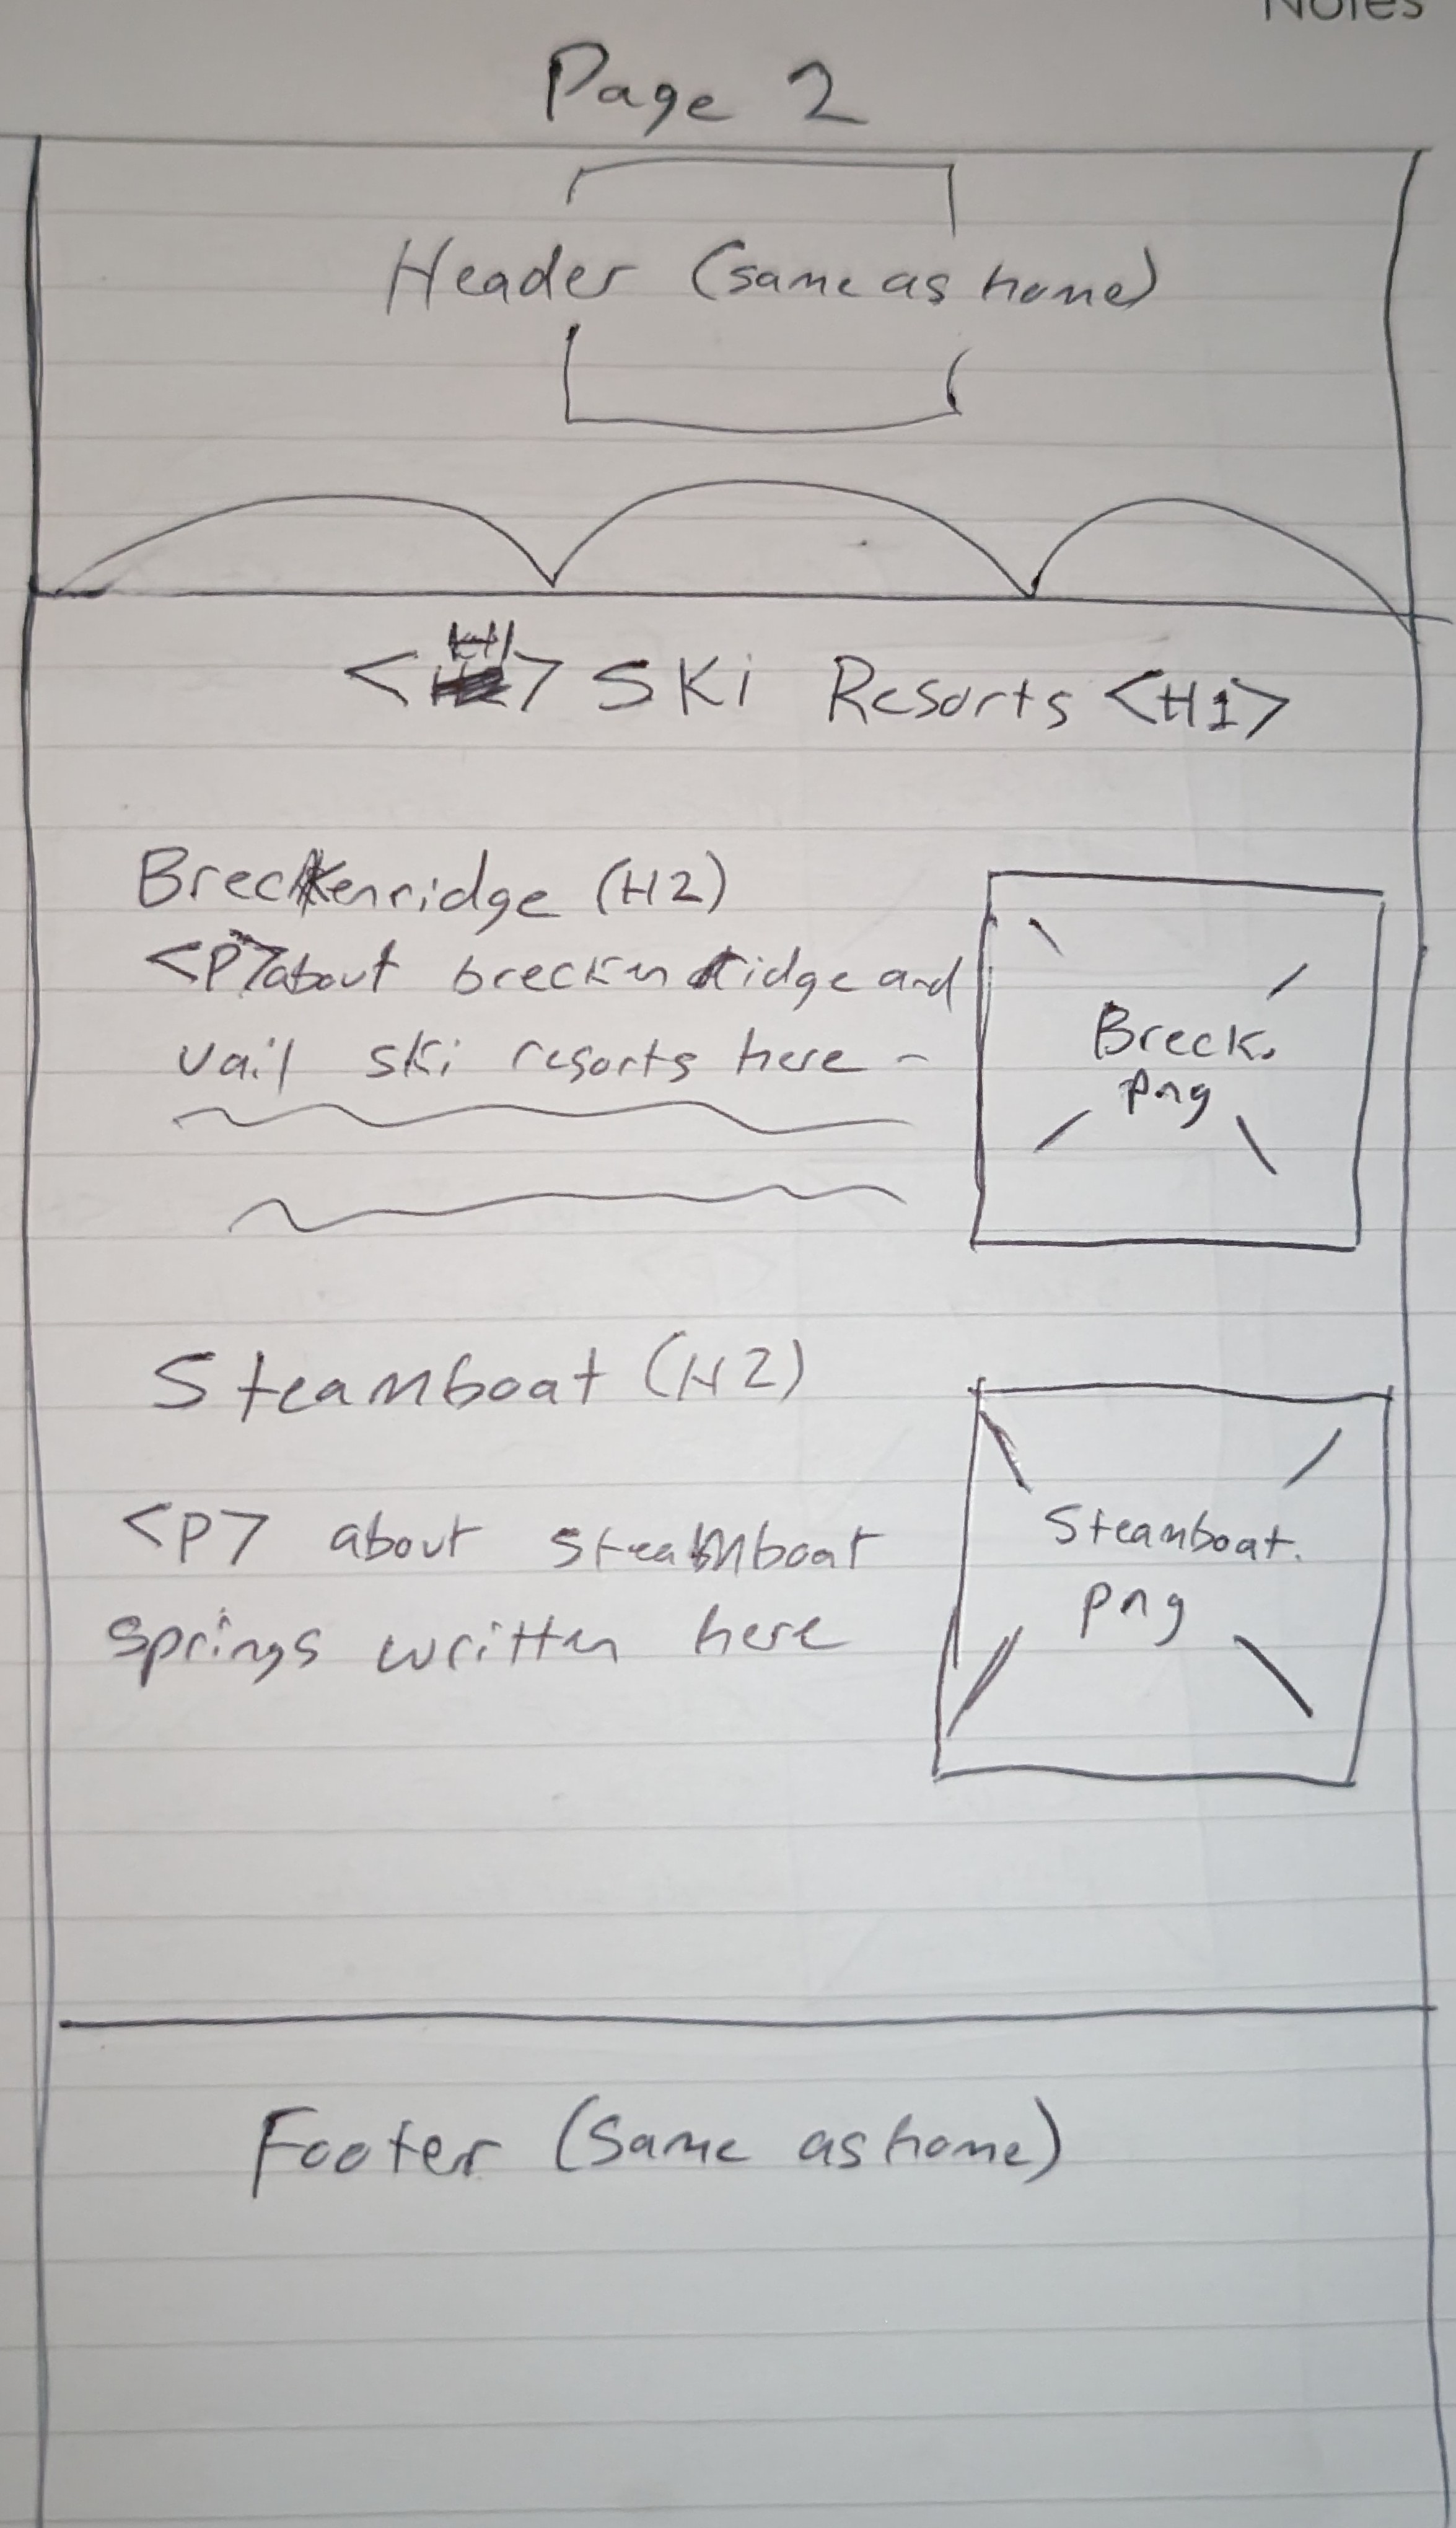 Notes
Page 2
Header (same as home)
<H1> Ski Resorts <H1>
Breckenridge (H2)
<P> about breckenridge and
vail ski resorts here -
Breck.
png
Steamboat (H2)
<P> about steamboat
springs written here
Steamboat.
png
Footer (Same as home)